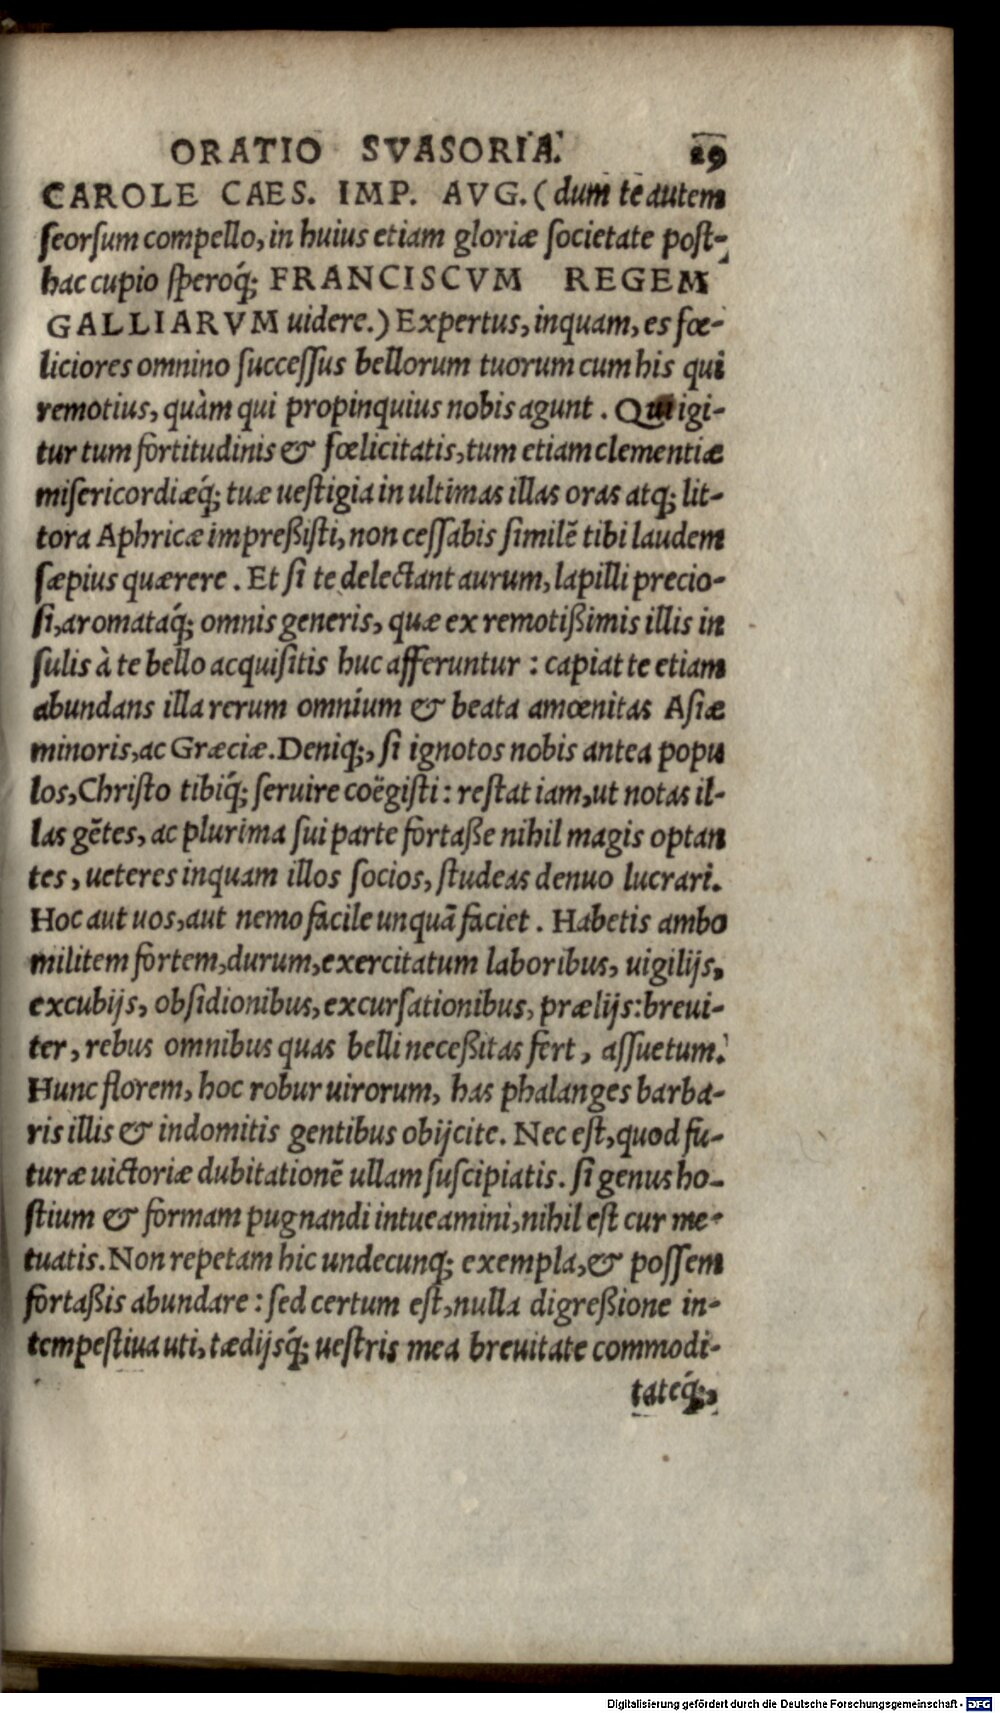 ORATIO SVASORIA. 29
CAROLE CAES. IMP. AVG. (dum te autem
seorsum compello, in huius etiam gloriæ societate post-
hac cupio speroq́; FRANCISCVM REGEM
GALLIARVM uidere.) Expertus, inquam, es fœ-
liciores omnino successus bellorum tuorum cum his qui
remotius, quàm qui propinquius nobis agunt. Qui igi-
tur tum fortitudinis & fœlicitatis, tum etiam clementiæ
misericordiæq́; tuæ uestigia in ultimas illas oras atq; lit-
tora Aphricæ impreßisti, non cessabis similē tibi laudem
sæpius quærere. Et si te delectant aurum, lapilli precio-
si, aromataq́; omnis generis, quæ ex remotißimis illis in
sulis à te bello acquisitis huc afferuntur: capiat te etiam
abundans illa rerum omnium & beata amœnitas Asiæ
minoris, ac Græciæ. Deniq;, si ignotos nobis antea popu
los, Christo tibiq́; seruire coëgisti: restat iam, ut notas il-
las gētes, ac plurima sui parte fortaße nihil magis optan
tes, ueteres inquam illos socios, studeas denuo lucrari.
Hoc aut uos, aut nemo facile unquā faciet. Habetis ambo
militem fortem, durum, exercitatum laboribus, uigilijs,
excubijs, obsidionibus, excursationibus, prælijs: breui-
ter, rebus omnibus quas belli neceßitas fert, assuetum.
Hunc florem, hoc robur uirorum, has phalanges barba-
ris illis & indomitis gentibus obijcite. Nec est, quod fu-
turæ uictoriæ dubitationē ullam suscipiatis. si genus ho-
stium & formam pugnandi intueamini, nihil est cur me-
tuatis. Non repetam hic undecunq; exempla, & possem
fortaßis abundare: sed certum est, nulla digreßione in-
tempestiua uti, tædijsq́; uestris mea breuitate commodi-
tateq́;,
Digitalisierung gefördert durch die Deutsche Forschungsgemeinschaft - DFG